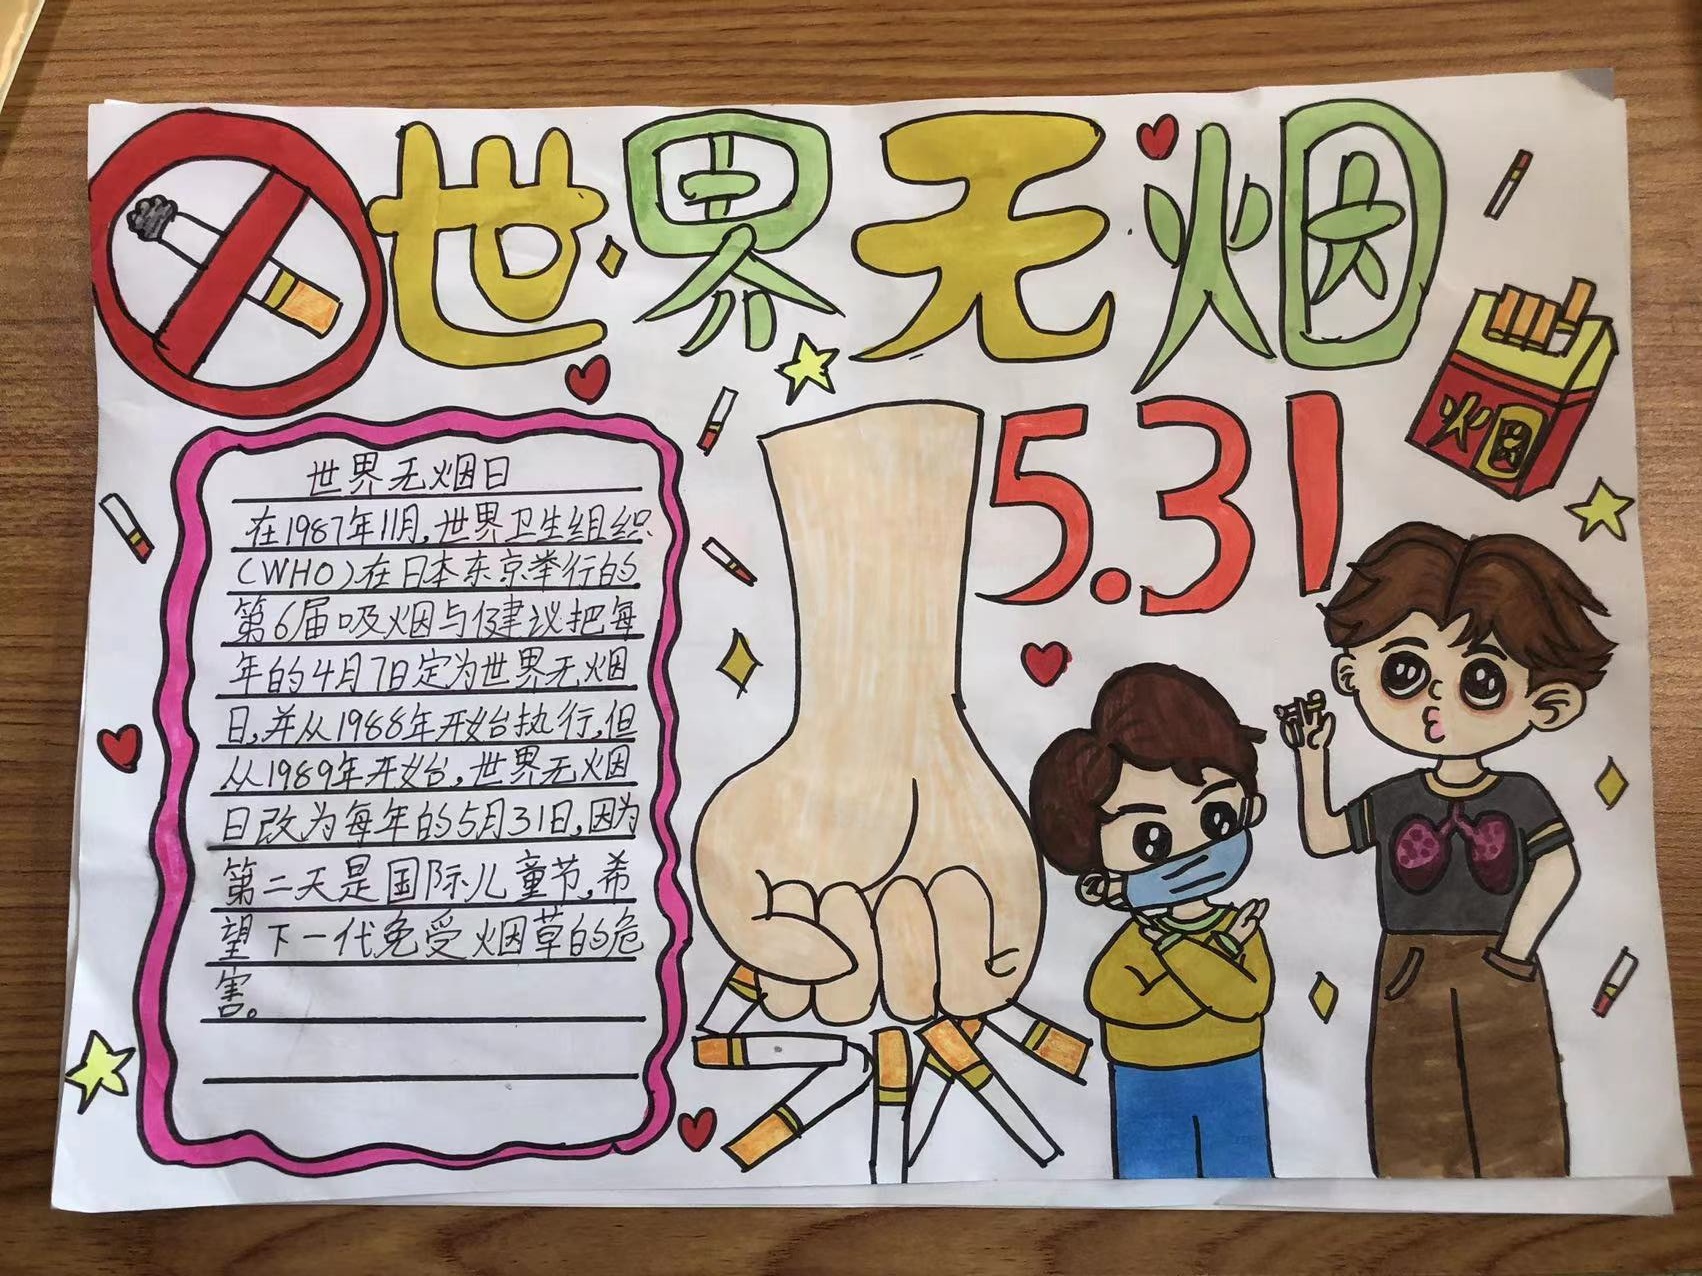 世界无烟
5.31
烟
世界无烟日
在1987年11月,世界卫生组织
(WHO)在日本东京举行的
第6届吸烟与健议把每
年的4月7日定为世界无烟
日,并从1988年开始执行,但
从1989年开始,世界无烟
日改为每年的5月31日,因为
第二天是国际儿童节,希
望下一代免受烟草的危
害。